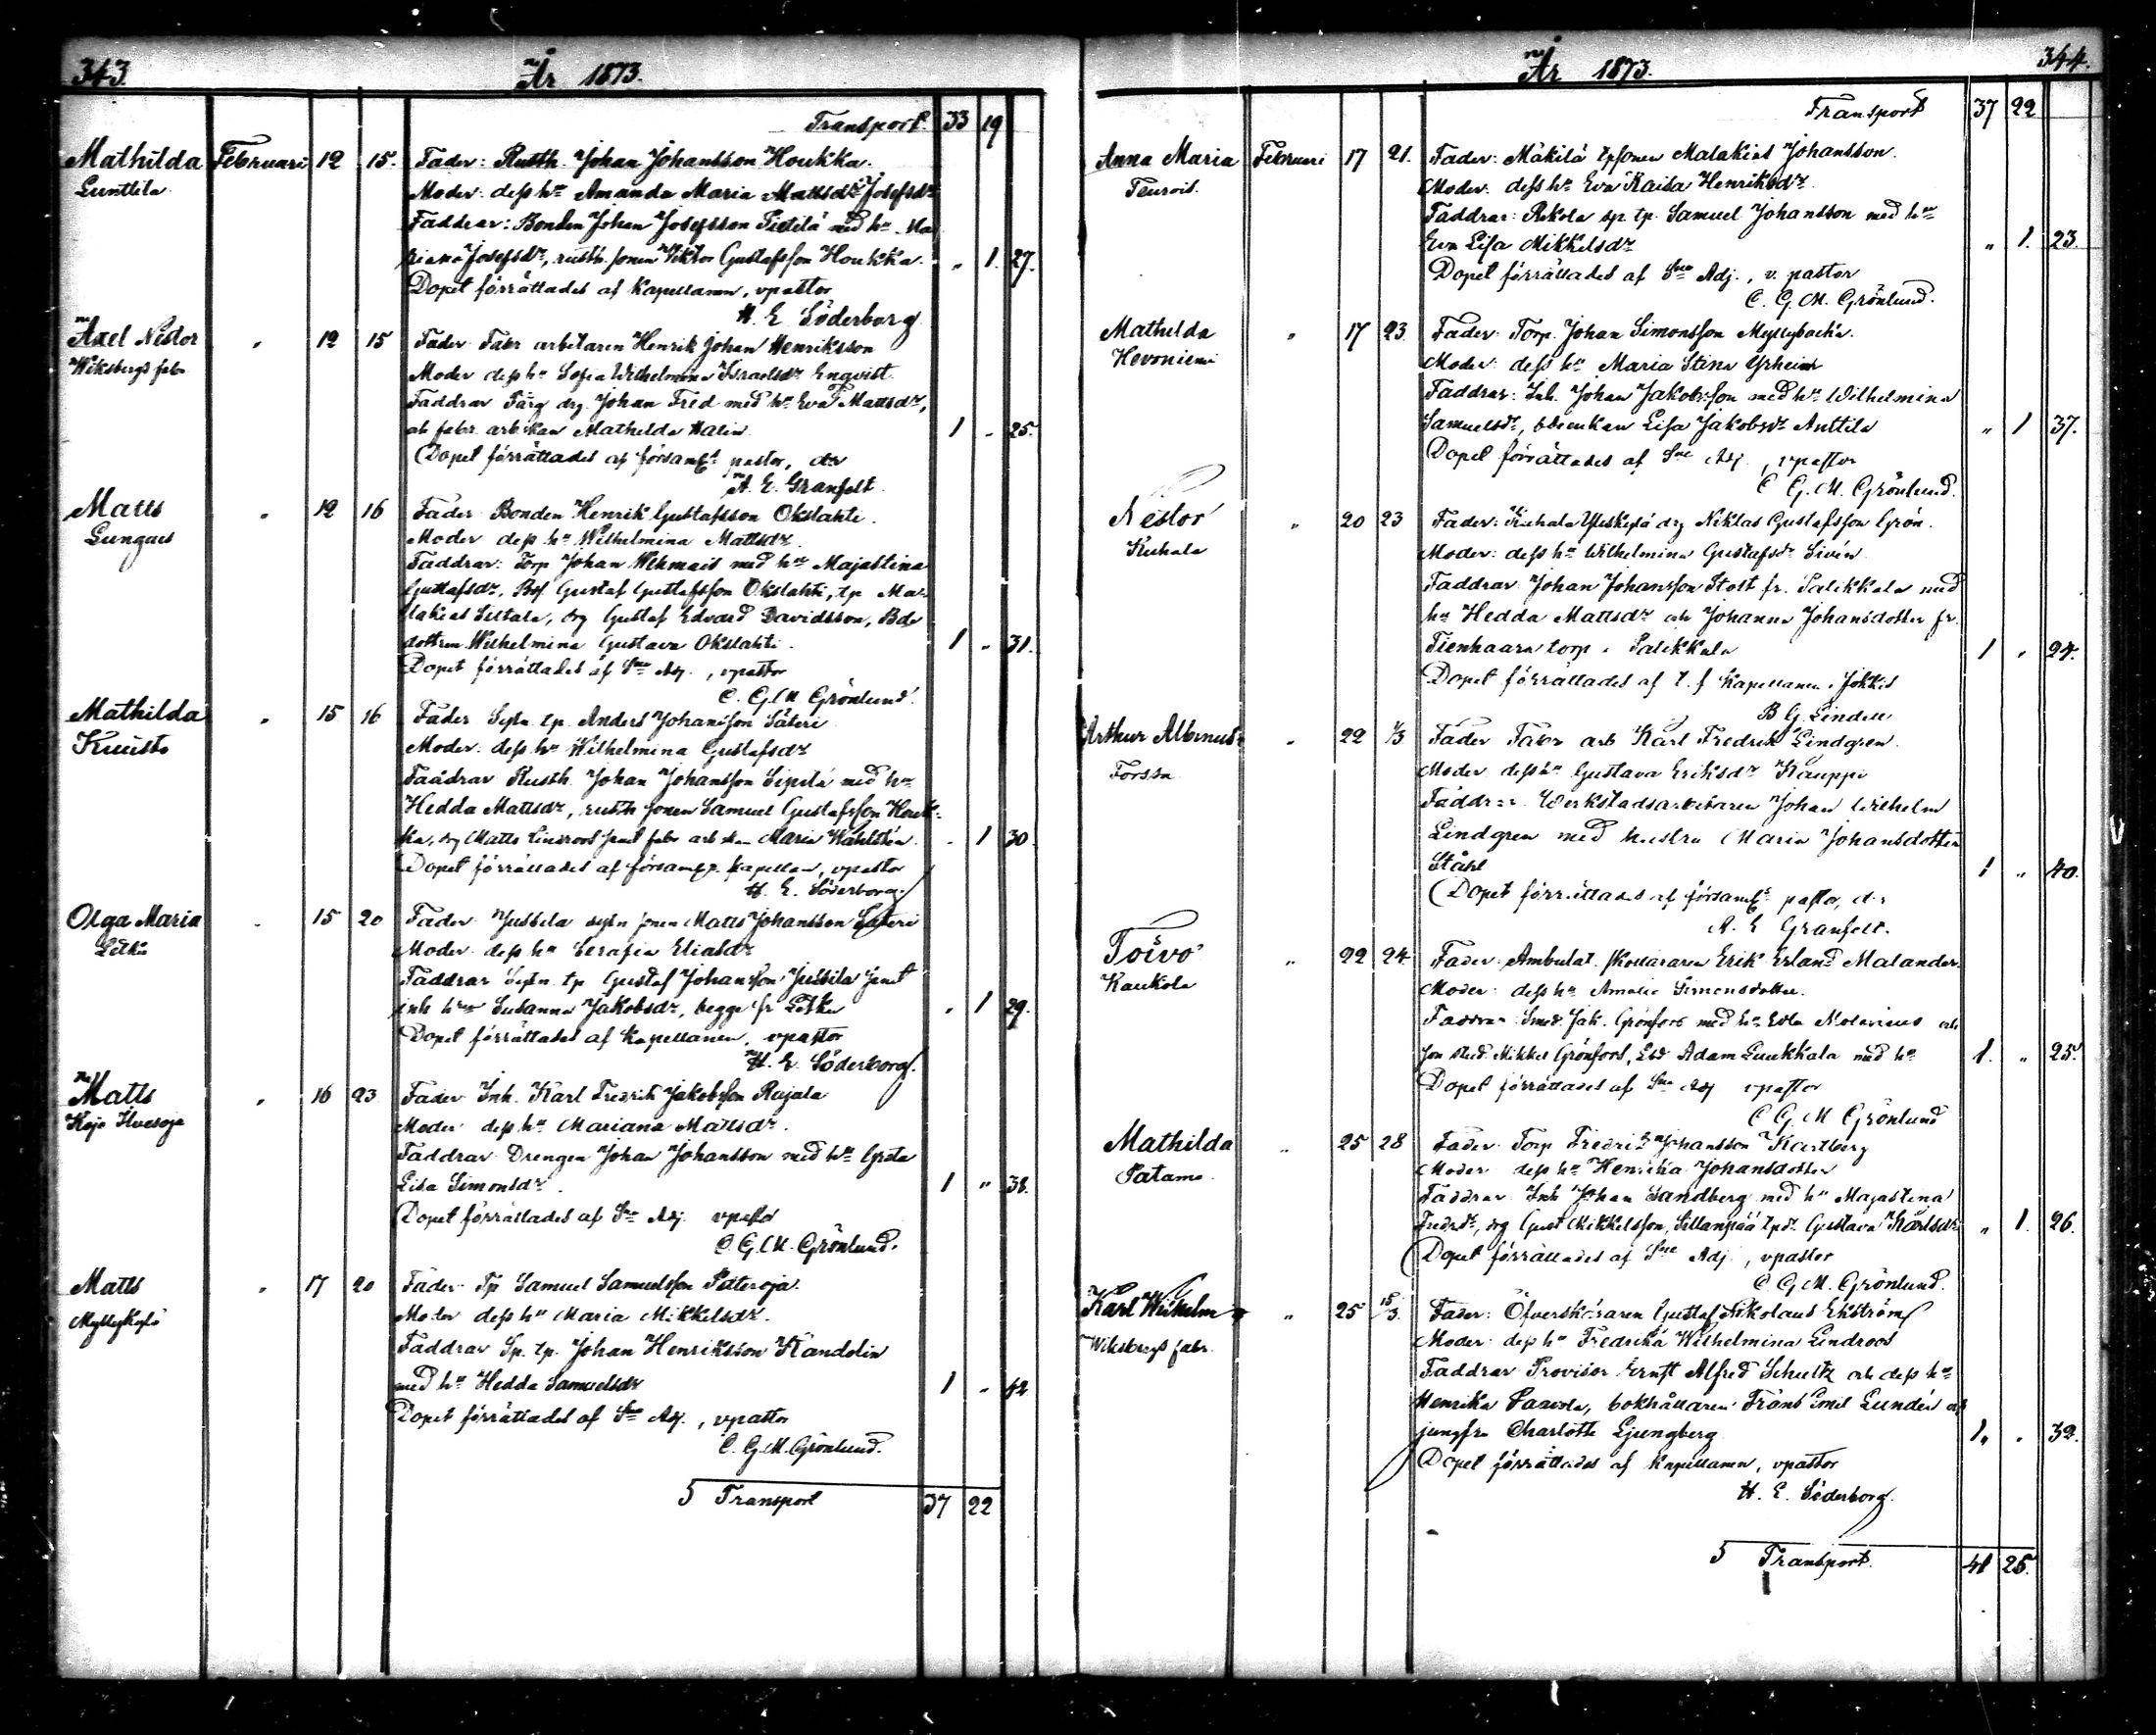 343.
År 1873.
Transport. 33 19
Mathilda Februari 12 15. Fader: Rusth. Johan Johansson Houkka.
Luntila Moder: dess hu Amanda Maria Mattsdr Josefsdr
Faddrar: Bonden Johan Josefsson Pietilä med hu Ma
riana Josefsdr, rusth. sonen Viktor Gustafsson Houkka. " 1. 27.
Dopet förrättades af Kapellanen, vpastor
H. E. Söderborg
Axel Nestor " 12 15 Fader Fabr arbetaren Henrik Johan Henriksson
Wiksbergs fabr Moder dess hu Sofia Wilhelmina Israelsdr Enqvist.
Faddrar Färg drg. Johan Fred med hu Eva Mattsdr,
och fabr. arb.skan Mathilda Malin 1 " 25.
Dopet förrättades af församls pastor, dr
A. E. Granfelt.
Matts " 12 16 Fader Bonden Henrik Gustafsson Okslahti.
Lungaes Moder dess hu Wilhelmina Mattsdr
Faddrar: Torp Johan Wehmais med hu Majastina
Gustafsdr, Bds Gustaf Gustafsson Okslahti, tp Ma-
lakias Siltala, drg Gustaf Edvard Davidsson, Bde
dottren Wilhelmina Gustava Okslahti. 1 " 31.
Dopet förrättades af Sne Adj., vpastor
C. G. M Grönlund.
Mathilda " 15 16 Fader Sytn. tp. Anders Johansson Säteri
Kuusto Moder: dess hu Wilhelmina Gustafsdr
Faddrar Rusth. Johan Johansson Sipilä med hu
Hedda Mattsdr, rusth sonen Samuel Gustafsson Houk-
ka, drg Matts Lindroos samt fabr arb skan Maria Wahlstén. " 1 30.
Dopet förrättades af församls. kapellan, vpastor
H. E. Söderborg.
Olga Maria " 15 20 Fader Jussila sytn sonen Matts Johansson Säteri
Letku Moder dess hu Serafia Eliasdr
Faddrar Sytn. tp Gustaf Johansson Jussila samt
inh hu Susanna Jakobsdr, begge fr Letku " 1 29.
Dopet förrättades af Kapellanen, vpastor
H. E. Söderborg.
Matts " 16 23 Fader Inh. Karl Fredrik Jakobsson Rajala
Kojo Moder dess hu Mariana Mattsdr.
Faddrar Drengen Johan Johansson med hu Greta
Lisa Simonsdr. 1 " 38.
Dopet förrättades af Sne Adj. vpastor
C. G. M. Grönlund.
Matts " 17 20 Fader Tp Samuel Samuelsson
Myllykylä Moder dess hu Maria Mikkelsdr.
Faddrar Sp. tp. Johan Henriksson Kandolin
med hu Hedda Samuelsdr 1 " 42
Dopet förrättades af Sne Adj., vpastor
C. G. M. Grönlund.
5 Transport 37 22
344.
År 1873.
Transport 37 22
Anna Maria Februari 17 21. Fader: Mäkilä tpsonen Malakias Johansson.
Teurois. Moder: dess hu Eva Kaisa Henriksdr.
Faddrar: Rekola sp. tp. Samuel Johansson med hu
Eva Lisa Mikkelsdr " 1. 23.
Dopet förrättades af Sne Adj., v. pastor
C. G. M. Grönlund.
Mathilda " 17 23. Fader Torp. Johan Simonsson Myllybacka.
Hevoniemi Moder: dess hu Maria Stina
Faddrar: Inh. Johan Jakobsson med hu Wilhelmina
Samuelsdr, Lisa Jakobsdr Anttila " 1 37.
Dopet förrättades af Sne Adj., vpastor
C G. M. Grönlund.
Nestor " 20 23 Fader: Kuhala drg Niklas Gustafsson Grön.
Kuhala Moder: dess hu Wilhelmina Gustafsdr Sivén
Faddrar Johan Johansson Stolt fr. Salikkala med
hu Hedda Mattsdr och Johanna Johansdotter fr.
Tienhaara torp i Salikkala 1 " 24.
Dopet förrättades af t. f Kapellanen i Jokkis
B G. Lindell
Arthur Albinus " 22 1/3 Fader Fabr arb Karl Fredrik Lindgren.
Forssa Moder dess hu Gustava Eriksdr Kauppi
Faddrar Werkstadsarbetaren Johan Wilhelm
Lindgren med hustru Maria Johansdotter
Ståhl 1 " 40.
Dopet förrättades af församls pastor, dr
A. E Granfelt.
Toivo " 22 24. Fader Ambulat. skolläraren Erik Erland Malander.
Kaukola Moder: dess hu Amalia Simonsdotter.
Faddrar: Smed. Jak. Grönfors med hu Edla Nolenius och
son sted. Mikkel Grönfors, Ldb Adam Luukkala med hu 1. " 25.
Dopet förrättades af Sne Adj vpastor
C G. M Grönlund
Mathilda " 25 28 Fader Torp Fredrik Johansson Karlberg
Satamo. Moder dess hu Henrika Johansdotter
Faddrar Inh Johan Sandberg med hu Majastina
Fredrdr, drg Gust Mikkelsson, Sillanpää tpdr Gustava Karlsdr " 1. 26.
Dopet förrättades af Sne Adj, vpastor
C G. M. Grönlund.
Karl Wilhelm " 25 15/3. Fader: Öfverskäraren Gustaf Nikolaus Ekström
Wiksbergs fabr. Moder: dess hu Fredrika Wilhelmina Lindroos
Faddrar Provisor Ernst Alfred Schultz och dess hu
Henrika Saxvola, bokhållaren Frans Emil Lundén och
jungfru Charlotte Ljungberg 1. " 32.
Dopet förrättades af Kapellanen, vpastor
H. E. Söderborg.
5 Transport. 41 25.